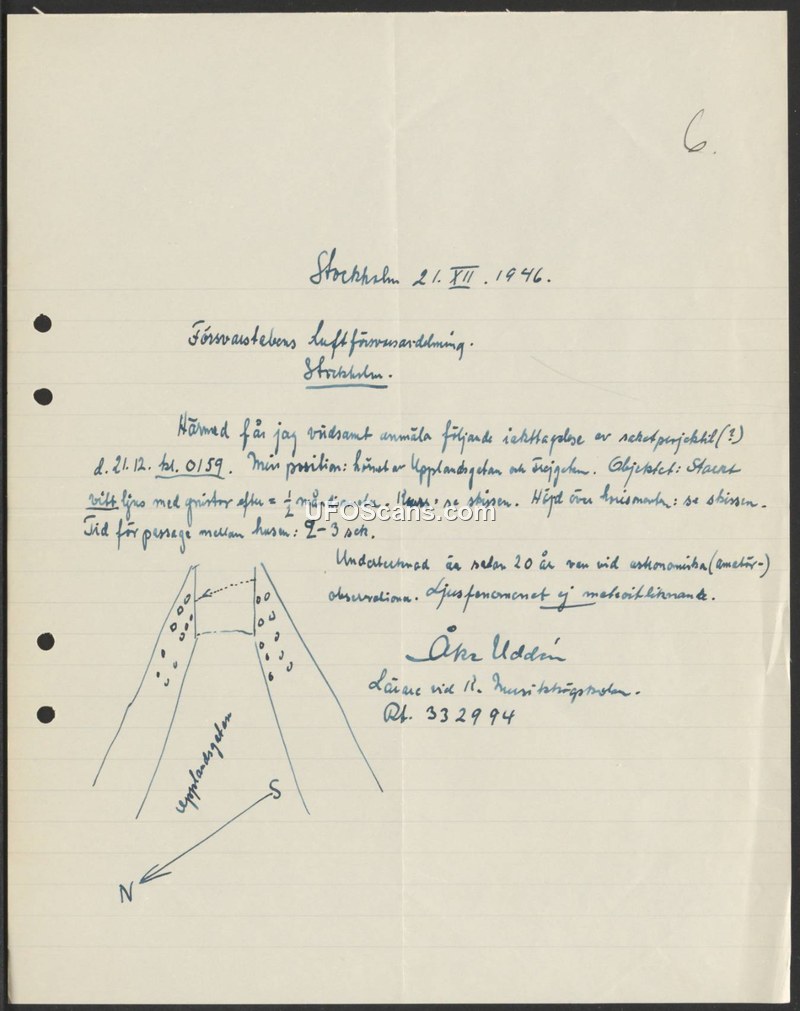 6.
Stockholm 21. XII. 1946.
Försvarstabens Luftförsvarsavdelning.
Stockholm.
Härmed får jag vördsamt anmäla följande iakttagelse av raketprojektil (?)
d. 21.12. kl. 0159. Min position: hörnet av Upplandsgatan och Odengatan. Objektet: Starkt
vitt ljus med gnistor efter = ½ måndiameter. Kurs: se skissen. Höjd över husmassan: se skissen.
Tid för passage mellan husen: 2-3 sek.
Undertecknad är sedan 20 år van vid astronomiska (amatör-)
observationer. Ljusfenomenet ej meteoritliknande.
Åke Uddén
Lärare vid K. Musikhögskolan.
Rt. 332994
Upplandsgatan
S
N
UFOScans.com